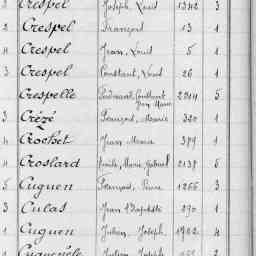 Crespel Joseph, Louis 1342 3
2 Crespel François 13 1
4 Crespel Jean, Louis 5 1
3 Crespel Constant, Louis 26 1
Crespelle Ferdinand, Constant Jean Marie 2214 5
3 Crézé François, Marie 320 1
4 Crochet Jean Marie 389 1
4 Croslard Emile, Marie, Gabriel 2138 5
5 Cuguen François, Pierre 1266 3
3 Culas Jean Baptiste 290 1
1 Cuguen Julien, Joseph 1902 4
Julien, Joseph